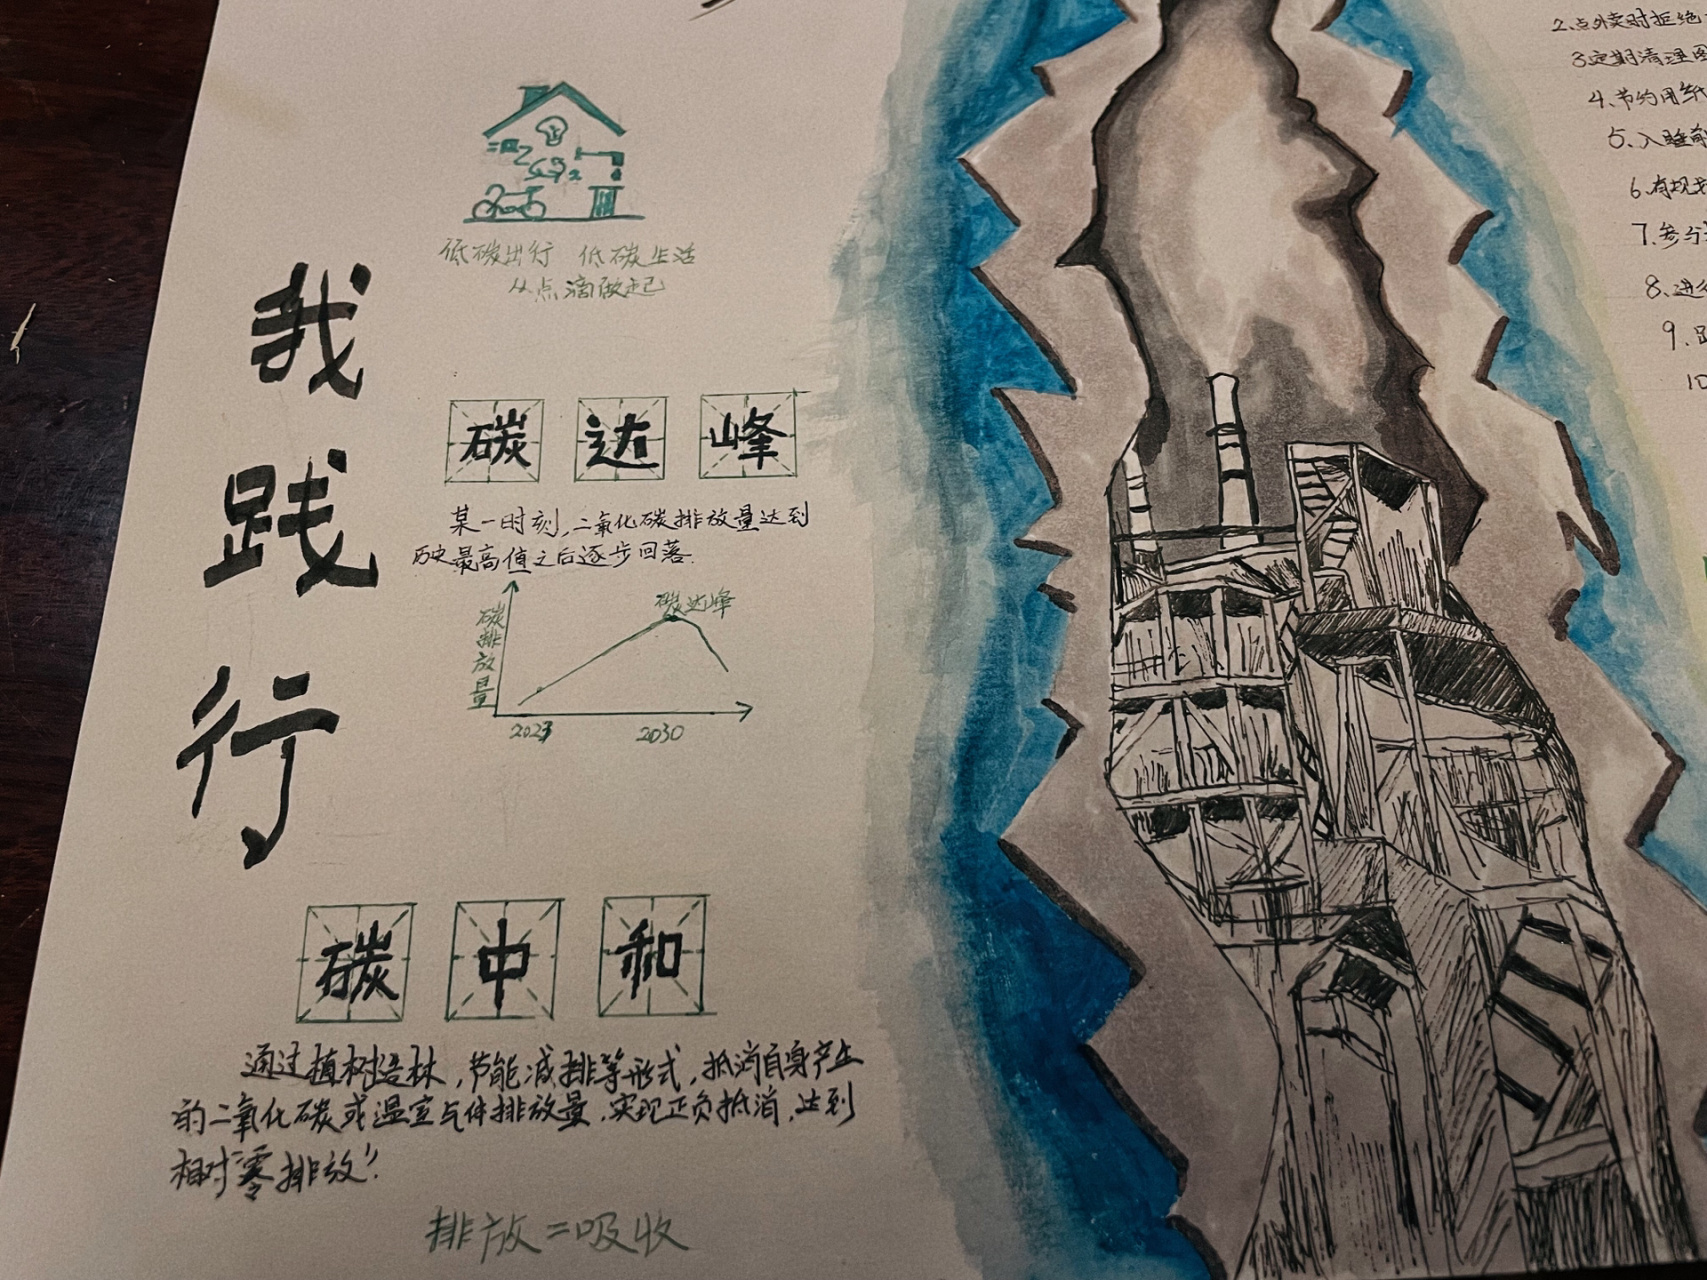 我践行
低碳出行 低碳生活
从点滴做起
碳达峰
某一时刻,二氧化碳排放量达到
历史最高值之后逐步回落.
碳排放量
碳达峰
2023 2030
碳中和
通过植树造林,节能减排等形式,抵消自身产生
的二氧化碳或温室气体排放量,实现正负抵消,达到
相对"零排放"!
排放=吸收
2.点外卖时拒绝
3.定期清理
4.节约用纸
5.入睡前
6.有规
7.参与
8.进行
9.
10